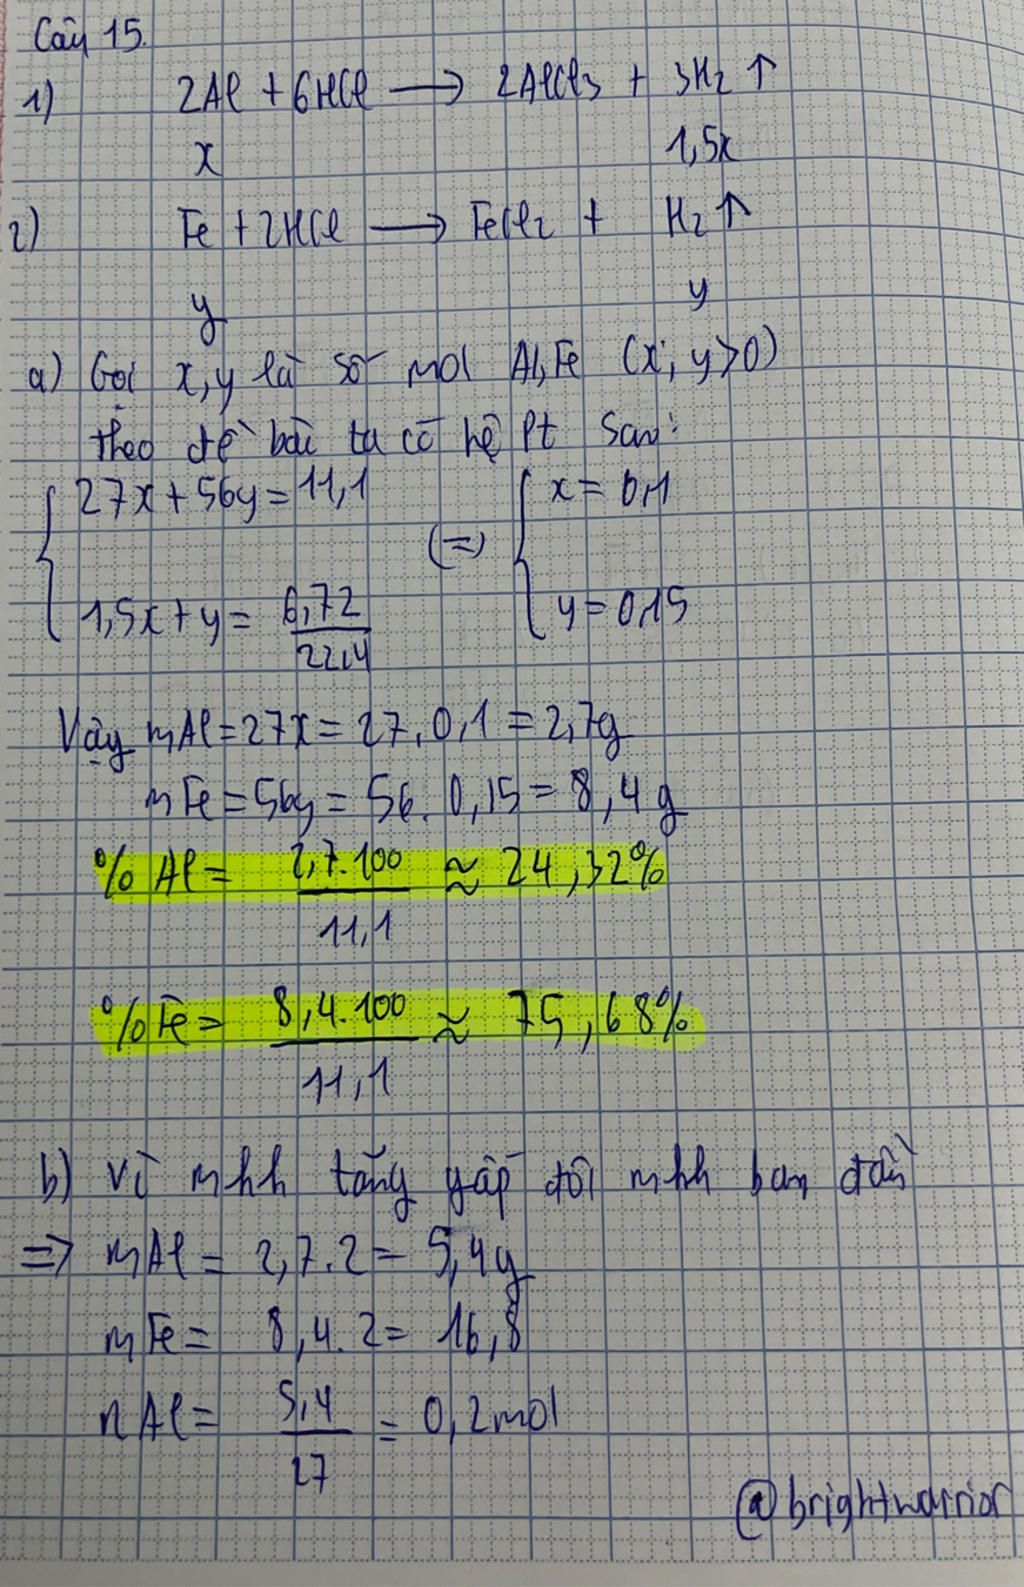 Câu 15.
1) 2Al + 6HCl → 2AlCl3 + 3H2 ↑
x 1,5x
2) Fe + 2HCl → FeCl2 + H2 ↑
y y
a) Gọi x,y là số mol Al, Fe (x; y>0)
theo đề bài ta có hệ Pt sau:
27x + 56y = 11,1 (=) x = 0,1
1,5x + y = 6,72/22,4 y = 0,15
Vậy mAl = 27x = 27.0,1 = 2,7g
mFe = 56y = 56.0,15 = 8,4g
% Al = 2,7.100/11,1 ≈ 24,32%
% Fe = 8,4.100/11,1 ≈ 75,68%
b) Vì mhh tăng gấp đôi mhh ban đầu
=> mAl = 2,7.2 = 5,4g
mFe = 8,4.2 = 16,8
nAl = 5,4/27 = 0,2mol
@brightwarrior